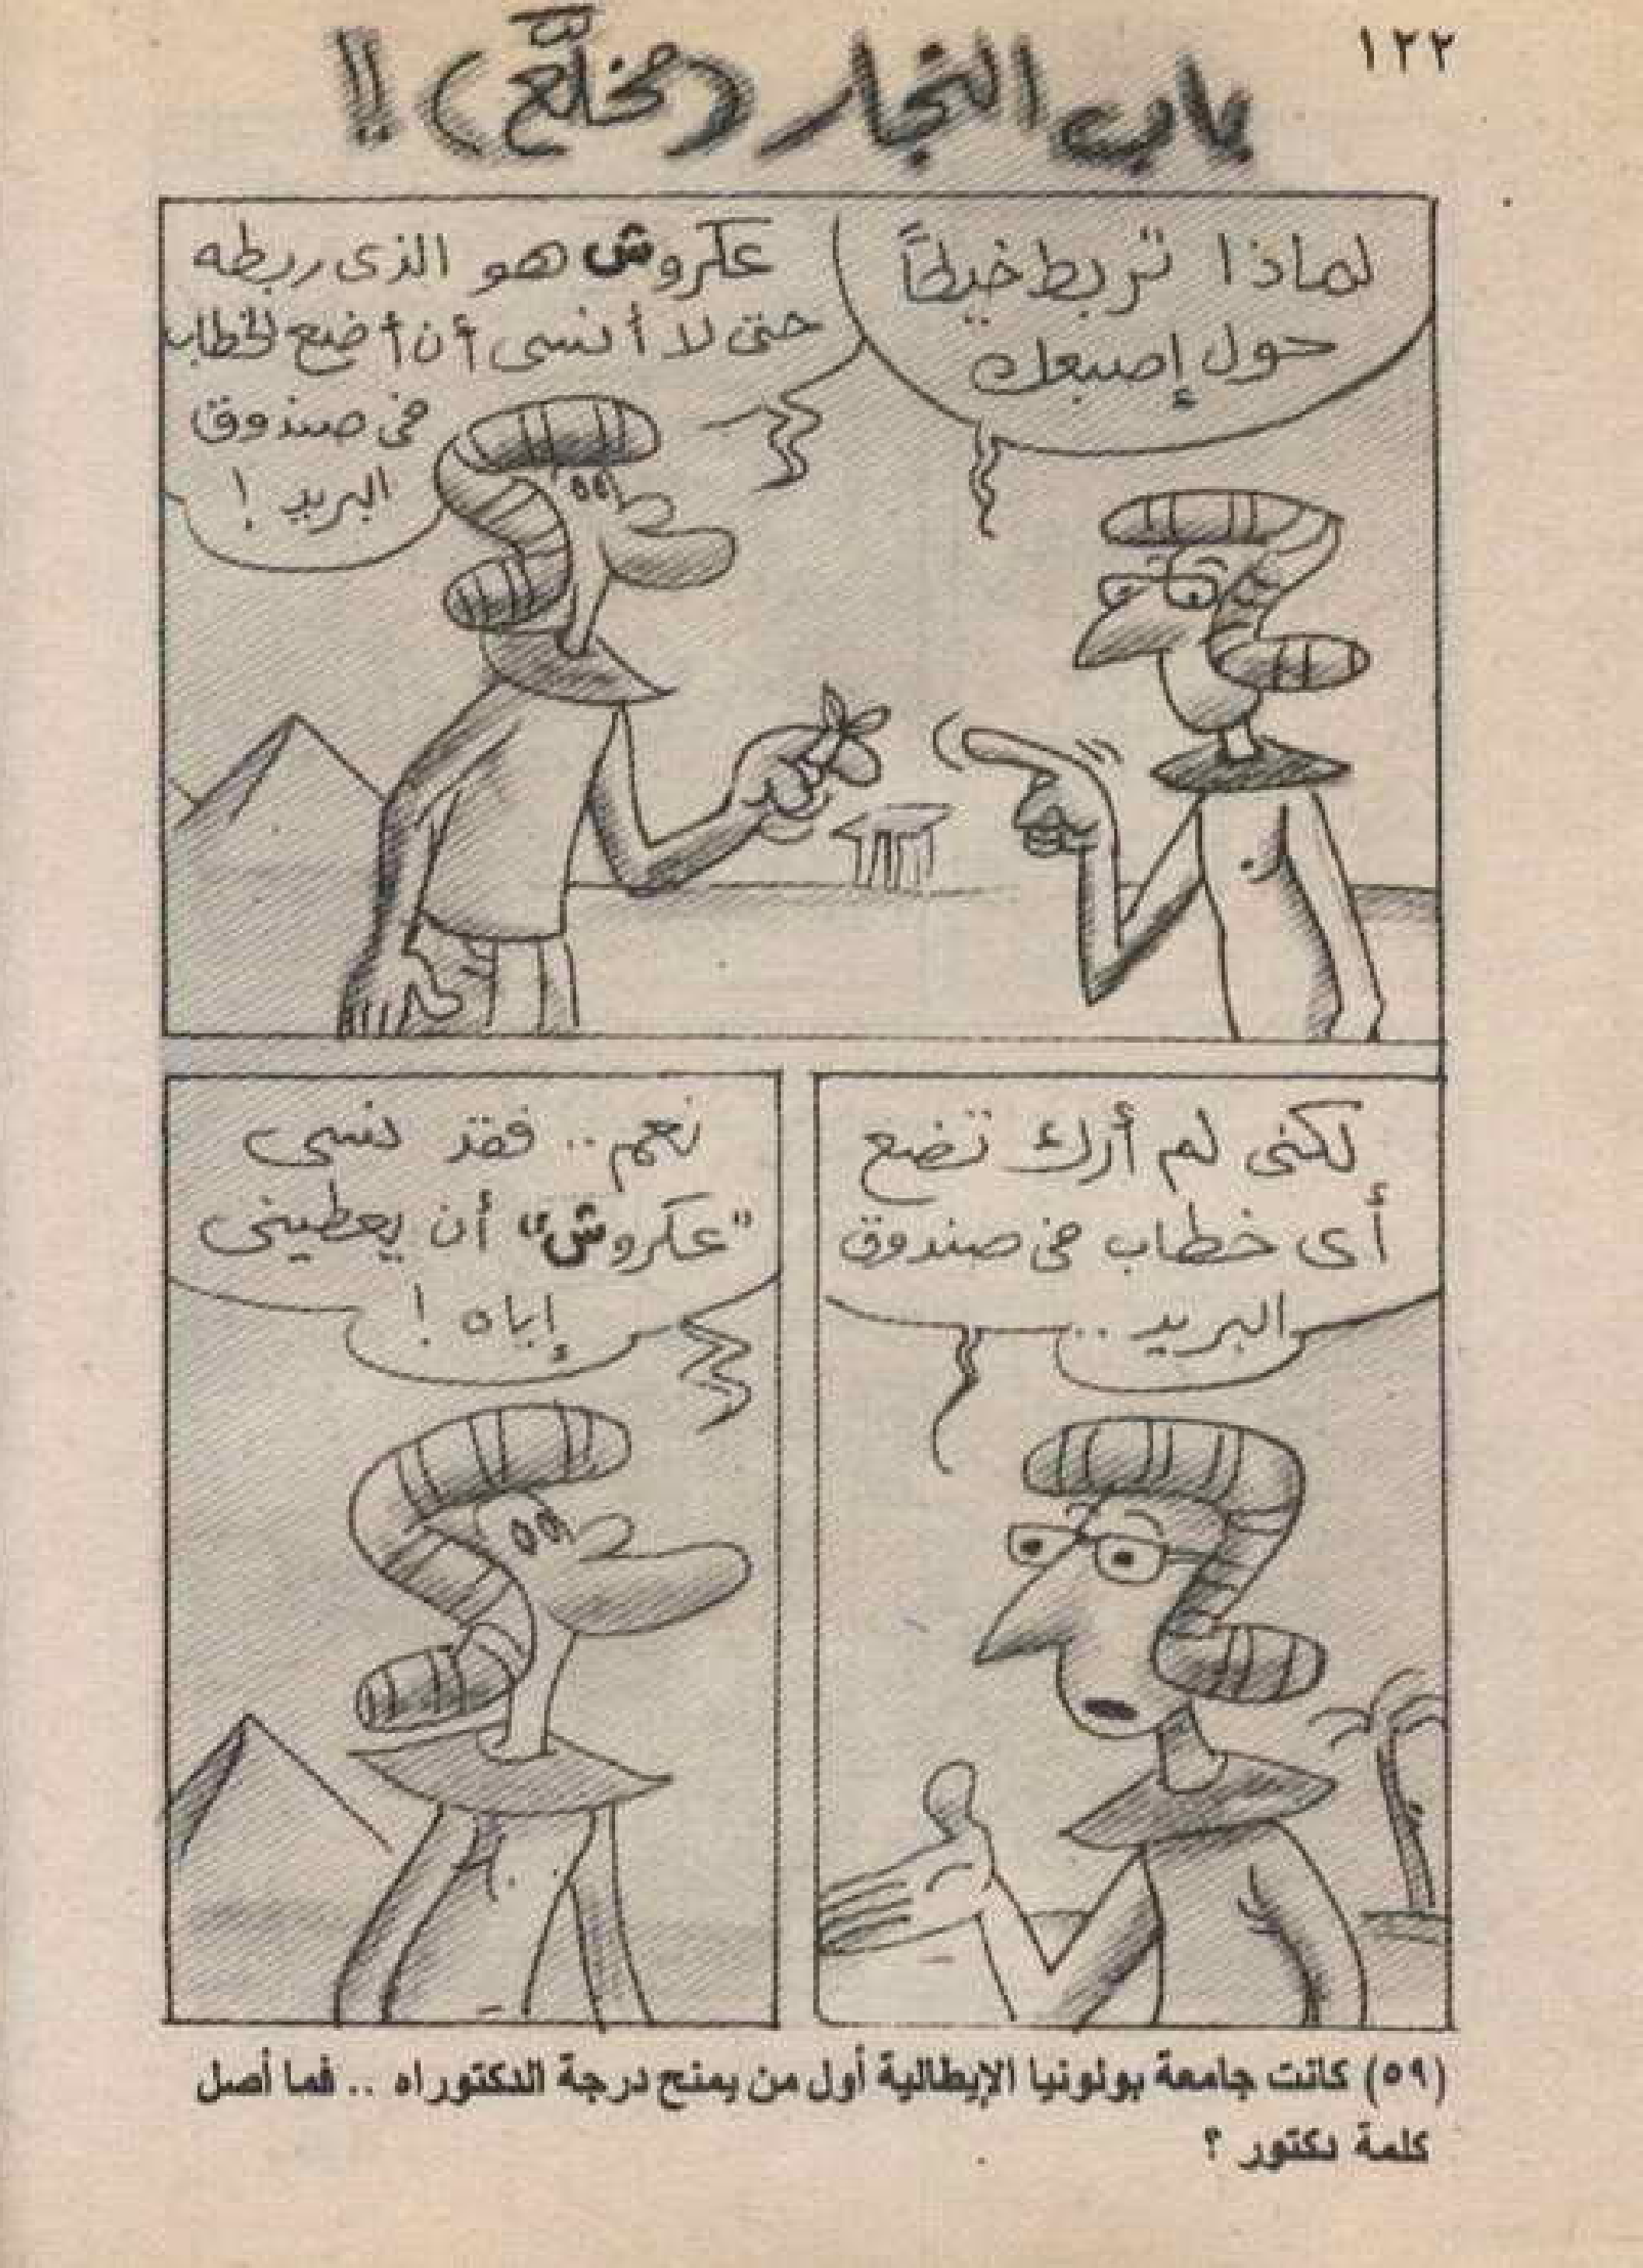 ١٢٢
باب النجار (مخلّع) !!
لماذا تربط خيطاً
حول إصبعك
عكروش هو الذى ربطه
حتى لا أنسى أن أضع الخطاب
فى صندوق
البريد !
لكنى لم أرك تضع
أى خطاب فى صندوق
البريد ..
نعم .. فقد نسى
"عكروش" أن يعطينى
إياه !
(٥٩) كانت جامعة بولونيا الإيطالية أول من يمنح درجة الدكتوراه .. فما أصل
كلمة دكتور ؟